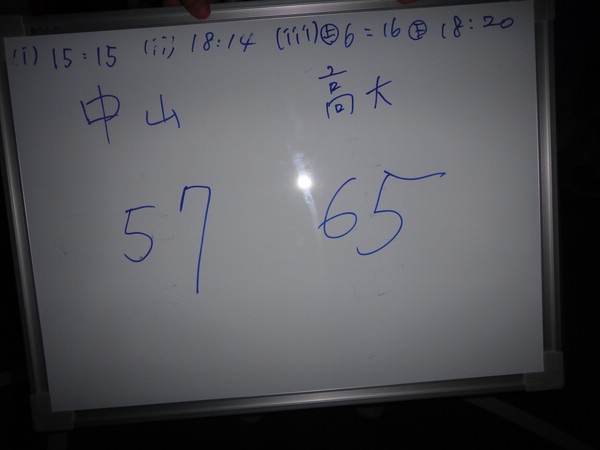 (i) 15:15 (ii) 18:14 (iii) 上 6=16 下 18:20
中山 高大
57 65